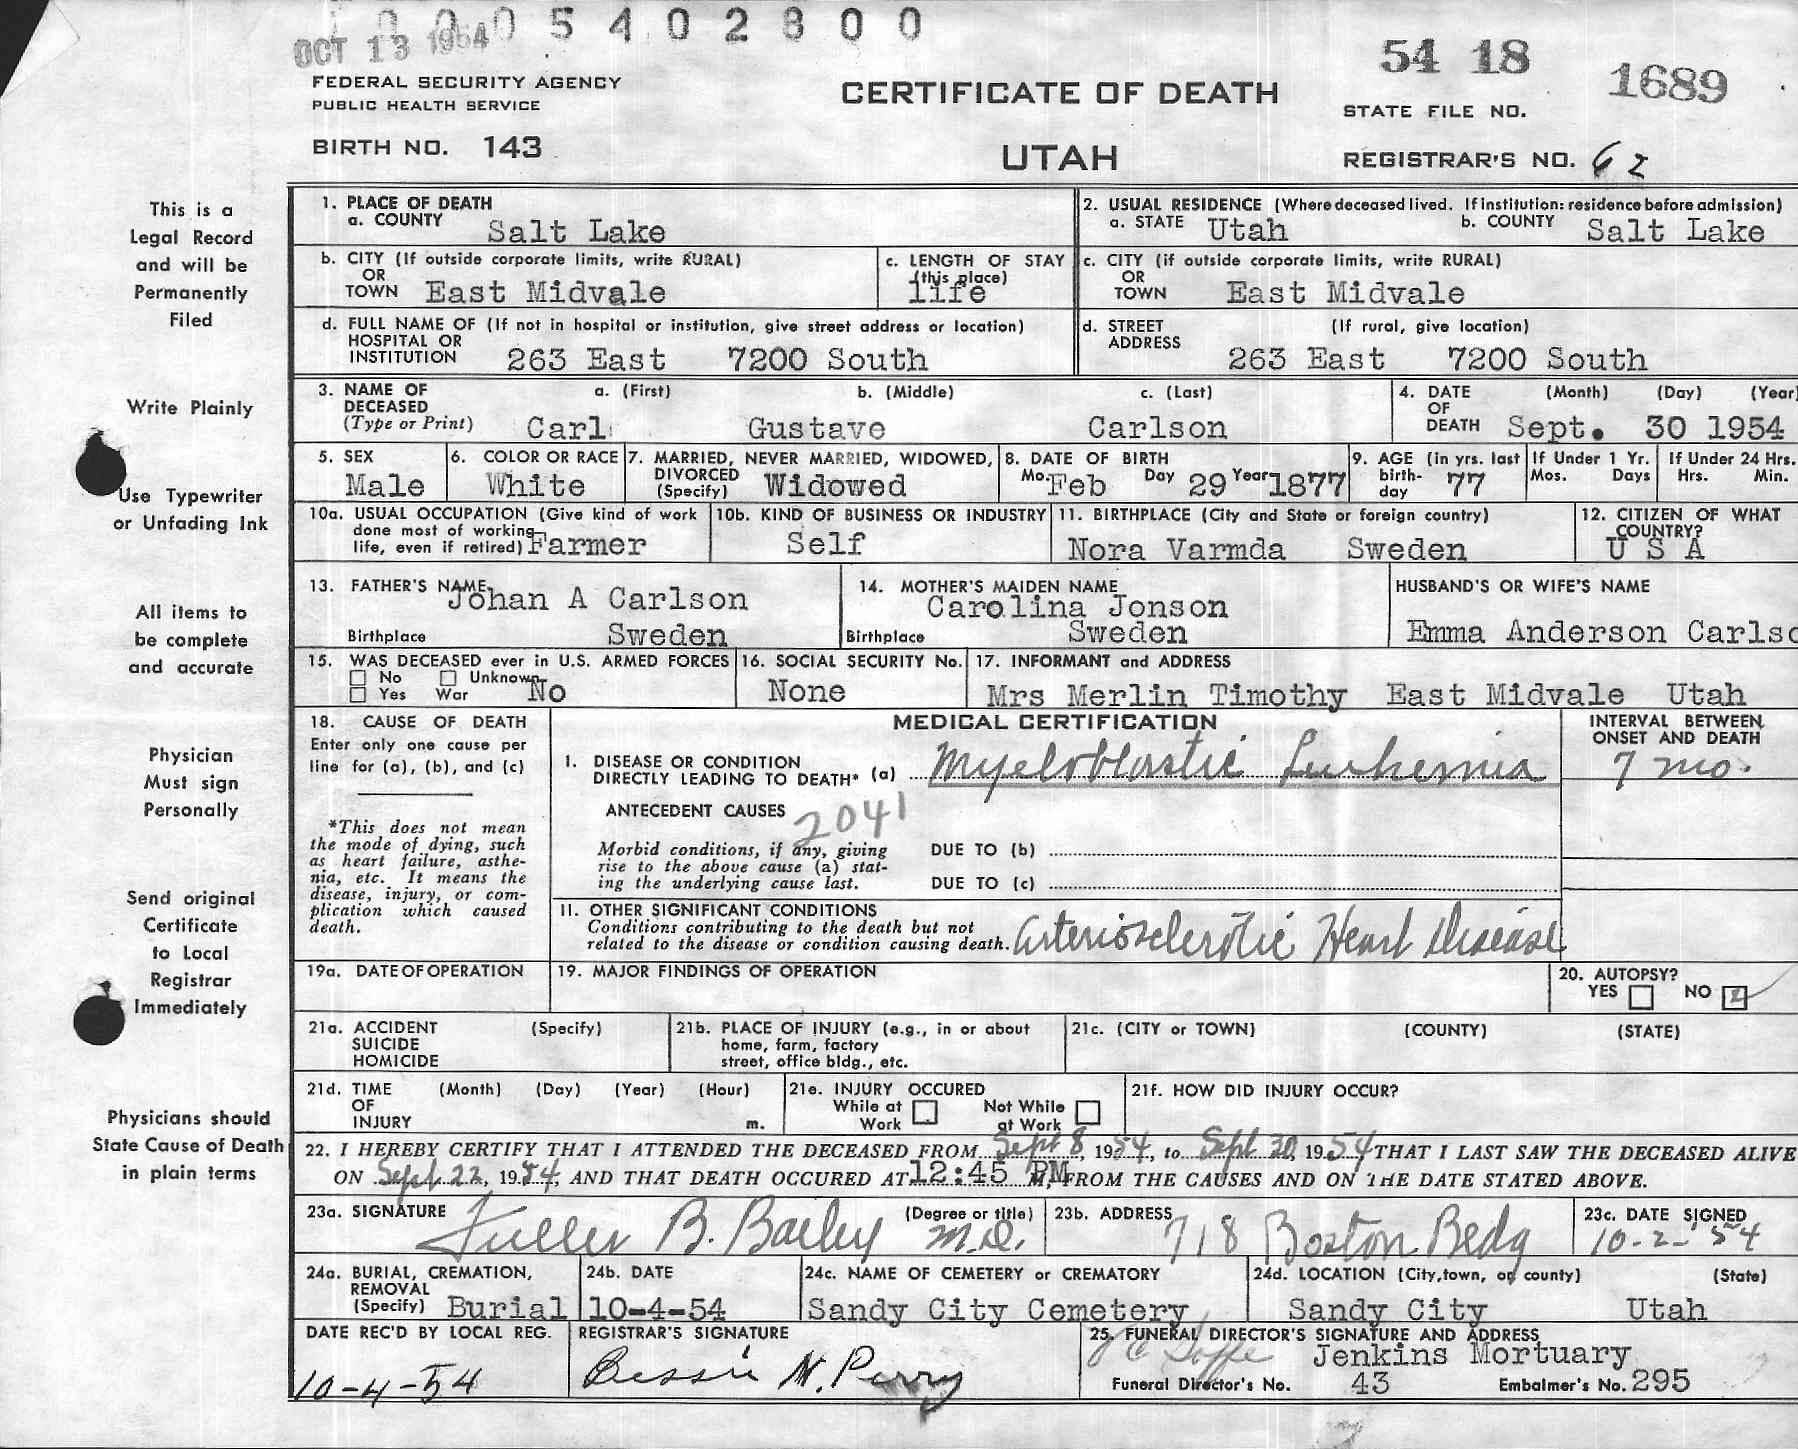 0 0 0 5 4 0 2 8 0 0
OCT 13 1954
54 18 1689
FEDERAL SECURITY AGENCY
PUBLIC HEALTH SERVICE
CERTIFICATE OF DEATH
STATE FILE NO.
BIRTH NO. 143
UTAH
REGISTRAR'S NO. 62
This is a
Legal Record
and will be
Permanently
Filed
Write Plainly
Use Typewriter
or Unfading Ink
All items to
be complete
and accurate
Physician
Must sign
Personally
Send original
Certificate
to Local
Registrar
Immediately
Physicians should
State Cause of Death
in plain terms
1. PLACE OF DEATH
a. COUNTY Salt Lake
2. USUAL RESIDENCE (Where deceased lived. If institution: residence before admission)
a. STATE Utah b. COUNTY Salt Lake
b. CITY (If outside corporate limits, write RURAL)
OR
TOWN East Midvale
c. LENGTH OF STAY
(this place)
life
c. CITY (if outside corporate limits, write RURAL)
OR
TOWN East Midvale
d. FULL NAME OF (If not in hospital or institution, give street address or location)
HOSPITAL OR
INSTITUTION 263 East 7200 South
d. STREET (If rural, give location)
ADDRESS
263 East 7200 South
3. NAME OF a. (First) b. (Middle) c. (Last)
DECEASED
(Type or Print) Carl Gustave Carlson
4. DATE (Month) (Day) (Year)
OF
DEATH Sept. 30 1954
5. SEX
Male
6. COLOR OR RACE
White
7. MARRIED, NEVER MARRIED, WIDOWED,
DIVORCED
(Specify) Widowed
8. DATE OF BIRTH
Mo. Feb Day 29 Year 1877
9. AGE (in yrs. last
birth-
day 77
If Under 1 Yr.
Mos. Days
If Under 24 Hrs.
Hrs. Min.
10a. USUAL OCCUPATION (Give kind of work
done most of working
life, even if retired) Farmer
10b. KIND OF BUSINESS OR INDUSTRY
Self
11. BIRTHPLACE (City and State or foreign country)
Nora Varmda Sweden
12. CITIZEN OF WHAT
COUNTRY?
U S A
13. FATHER'S NAME
Johan A Carlson
Birthplace Sweden
14. MOTHER'S MAIDEN NAME
Carolina Jonson
Birthplace Sweden
HUSBAND'S OR WIFE'S NAME
Emma Anderson Carlso
15. WAS DECEASED ever in U.S. ARMED FORCES
No Unknown
Yes War No
16. SOCIAL SECURITY No.
None
17. INFORMANT and ADDRESS
Mrs Merlin Timothy East Midvale Utah
18. CAUSE OF DEATH
Enter only one cause per
line for (a), (b), and (c)
*This does not mean
the mode of dying, such
as heart failure, asthe-
nia, etc. It means the
disease, injury, or com-
plication which caused
death.
MEDICAL CERTIFICATION
INTERVAL BETWEEN
ONSET AND DEATH
I. DISEASE OR CONDITION
DIRECTLY LEADING TO DEATH* (a) Myeloblastic Leukemia 7 mo.
ANTECEDENT CAUSES 2041
Morbid conditions, if any, giving
rise to the above cause (a) stat-
ing the underlying cause last.
DUE TO (b)
DUE TO (c)
II. OTHER SIGNIFICANT CONDITIONS
Conditions contributing to the death but not
related to the disease or condition causing death. Arteriosclerotic Heart Disease
19a. DATE OF OPERATION
19. MAJOR FINDINGS OF OPERATION
20. AUTOPSY?
YES NO 2
21a. ACCIDENT (Specify)
SUICIDE
HOMICIDE
21b. PLACE OF INJURY (e.g., in or about
home, farm, factory
street, office bldg., etc.
21c. (CITY or TOWN) (COUNTY) (STATE)
21d. TIME (Month) (Day) (Year) (Hour)
OF
INJURY m.
21e. INJURY OCCURED
While at Not While
Work at Work
21f. HOW DID INJURY OCCUR?
22. I HEREBY CERTIFY THAT I ATTENDED THE DECEASED FROM Sept 8, 1954, to Sept 30, 1954 THAT I LAST SAW THE DECEASED ALIVE
ON Sept 22, 1954, AND THAT DEATH OCCURED AT 12:45 PM, FROM THE CAUSES AND ON THE DATE STATED ABOVE.
23a. SIGNATURE (Degree or title)
Fuller B. Bailey M.D.
23b. ADDRESS
718 Boston Bldg
23c. DATE SIGNED
10-2-'54
24a. BURIAL, CREMATION,
REMOVAL
(Specify) Burial
24b. DATE
10-4-54
24c. NAME OF CEMETERY or CREMATORY
Sandy City Cemetery
24d. LOCATION (City, town, or county) (State)
Sandy City Utah
DATE REC'D BY LOCAL REG.
10-4-54
REGISTRAR'S SIGNATURE
Bessie N. Perry
25. FUNERAL DIRECTOR'S SIGNATURE AND ADDRESS
Goffe Jenkins Mortuary
Funeral Director's No. 43 Embalmer's No. 295